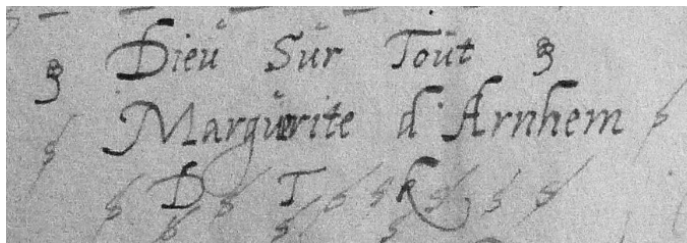 Dieŭ Sŭr Toŭt
Margŭerite d'Arnhem
D T K